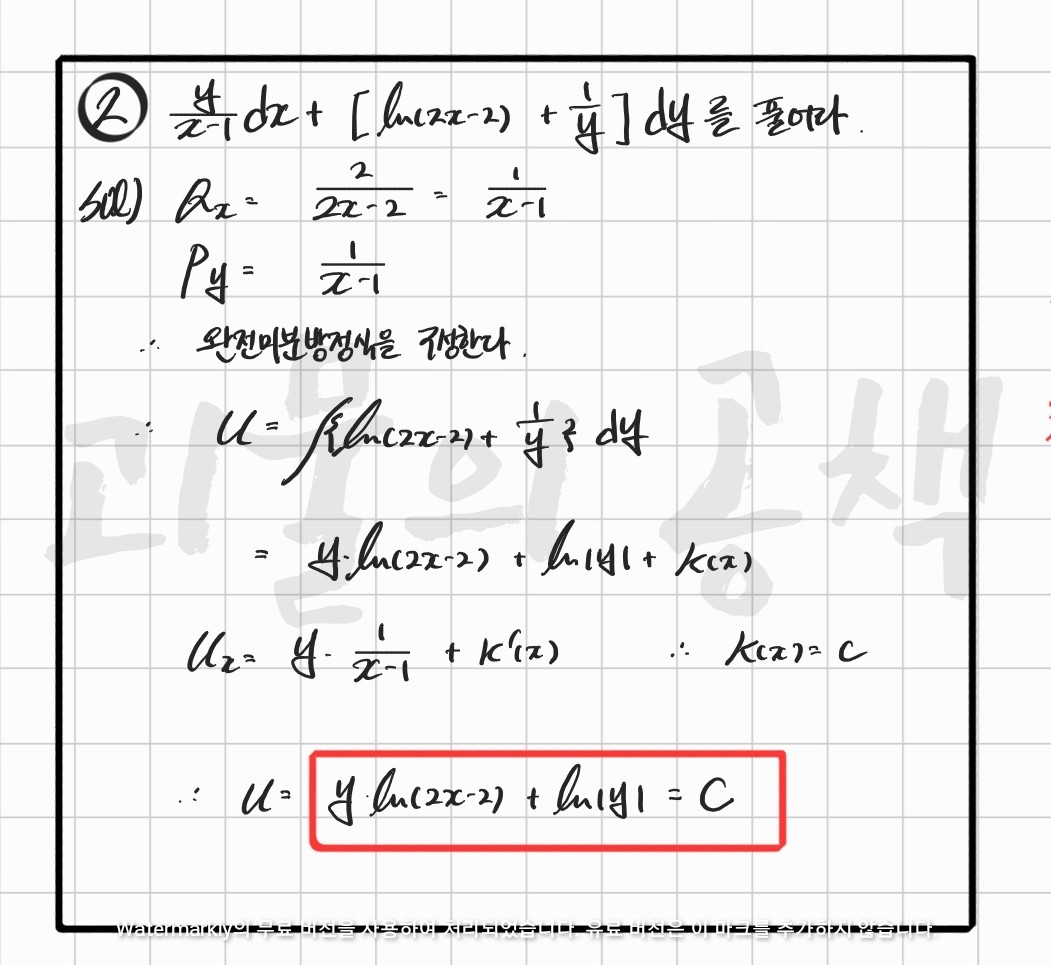 ② y/(x-1) dx + [ln(2x-2) + 1/y] dy를 풀어라.
sol) Qx = 2/(2x-2) = 1/(x-1)
Py = 1/(x-1)
∴ 완전미분방정식을 구성한다.
∴ U = ∫{ln(2x-2) + 1/y} dy
= y·ln(2x-2) + ln|y| + k(x)
Ux = y· 1/(x-1) + k'(x) ∴ k(x) = c
∴ U = y·ln(2x-2) + ln|y| = C
괴물의 공책
Watermarkly의 무료 버전을 사용하여 처리되었습니다. 유료 버전은 이 마크를 추가하지 않습니다.